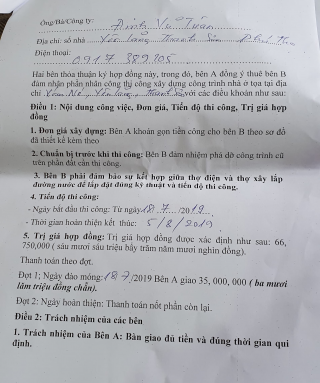 Ông/Bà/Công ty: Đinh Vũ Tuấn
Địa chỉ: số nhà Yên Lương Thanh Sơn Phú Thọ
Điện thoại:
0917 389 105
Hai bên thỏa thuận ký hợp đồng này, trong đó, bên A đồng ý thuê bên B
đảm nhận phần nhân công thi công xây dựng công trình nhà ở tọa tại địa
chỉ với các điều khoản như sau:
Điều 1: Nội dung công việc, Đơn giá, Tiến độ thi công, Trị giá hợp
đồng
1. Đơn giá xây dựng: Bên A khoán gọn tiền công cho bên B theo sơ đồ
đã thiết kế kèm theo
2. Chuẩn bị trước khi thi công: Bên B đảm nhiệm phá dỡ công trình cũ
trên phần đất cần thi công.
3. Bên B phải đảm bảo sự kết hợp giữa thợ điện và thợ xây lắp
đường nước để lắp đặt đúng kỹ thuật và tiến độ thi công.
4. Tiến độ thi công:
- Ngày bắt đầu thi công: Từ ngày 18 7 /2019
- Thời gian hoàn thiện kết thúc: 5/8/2019
5. Trị giá hợp đồng: Trị giá hợp đồng được xác định như sau: 66,
750,000 ( sáu mươi sáu triệu bảy trăm năm mươi nghìn đồng).
Thanh toán theo đợt.
Đợt 1; Ngày đào móng: 18-7/2019 Bên A giao 35, 000, 000 ( ba mươi
lăm triệu đồng chẵn).
Đợt 2: Ngày hoàn thiện: Thanh toán nốt phần còn lại.
Điều 2: Trách nhiệm của các bên
I. Trách nhiệm của Bên A: Bàn giao đủ tiền và đúng thời gian qui
định.